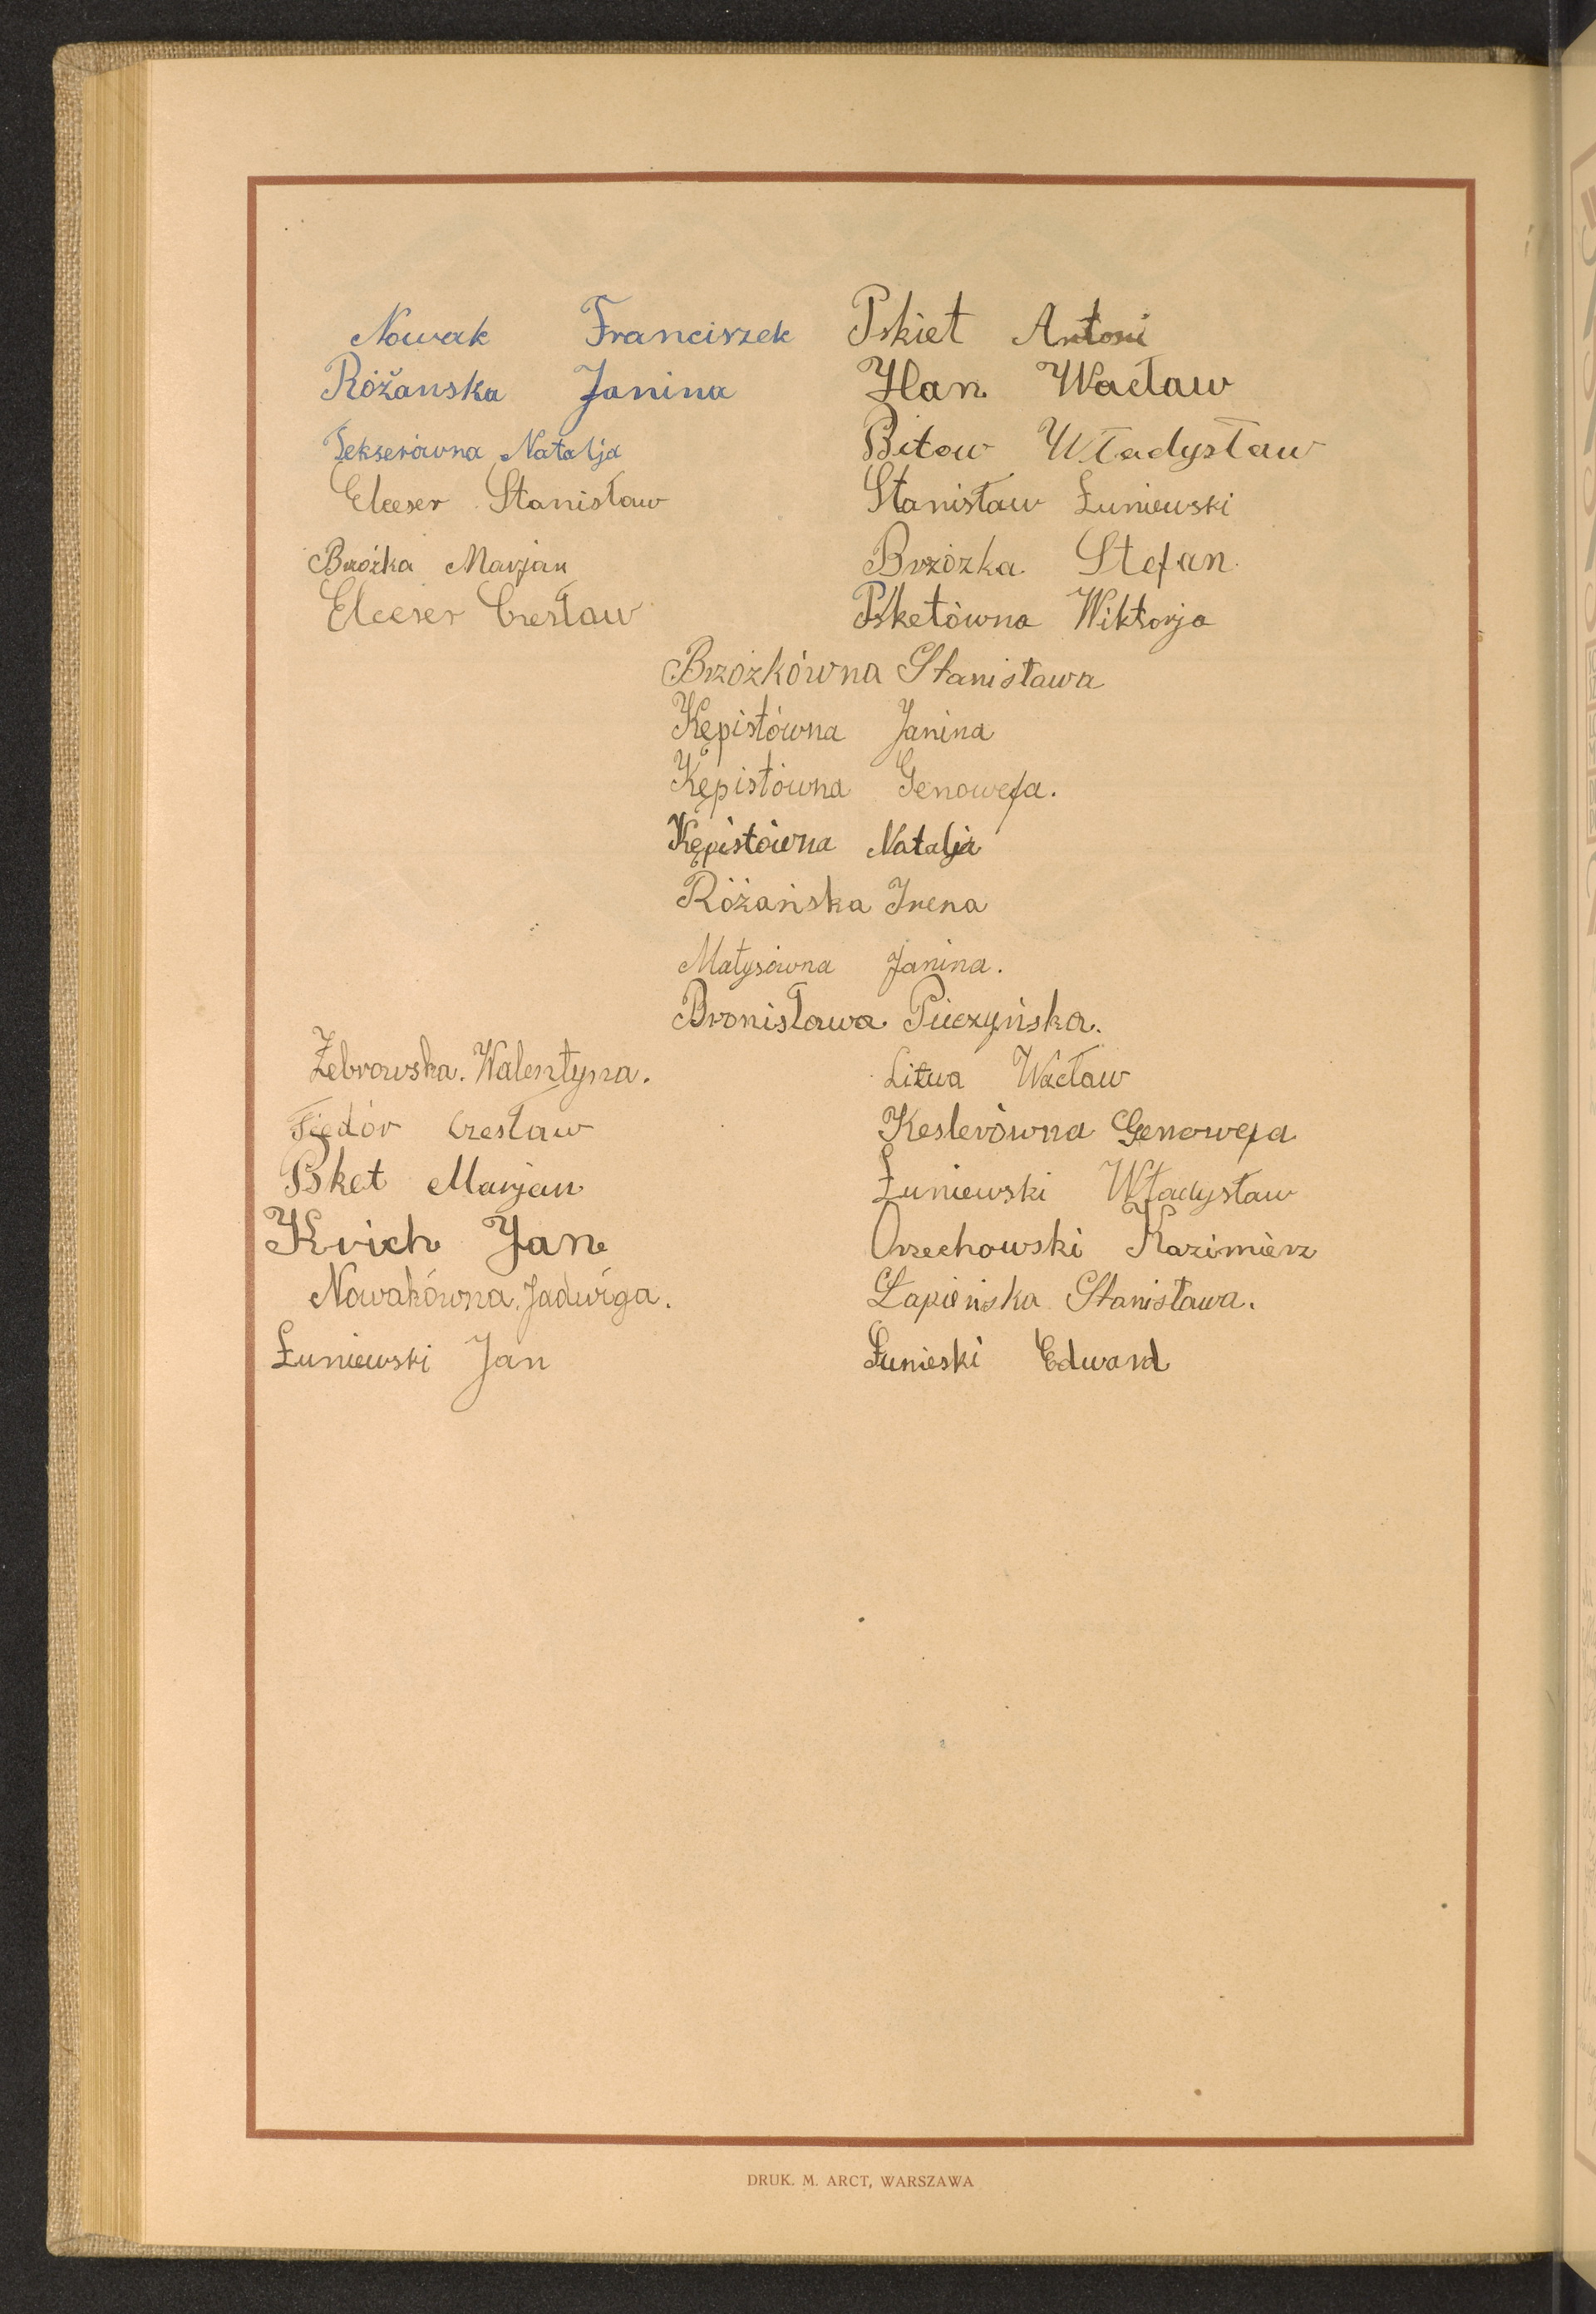 Nowak Franciszek
Różańska Janina
Tekserówna Natalja
Eleeser Stanisław
Brzózka Marjan
Eleeser Czesław
Pskiet Antoni
Ilan Wacław
Bitow Władysław
Stanisław Łuniewski
Brzózka Stefan
Psketówna Wiktorja
Brzózkówna Stanisława
Kępistówna Janina
Kępistówna Genowefa.
Kępistówna Natalja
Różańska Irena
Małysówna Janina.
Bronisława Piiczyńska.
Żebrowska. Walentyna.
Fiedór Czesław
Psket Marjan
Krich Jan
Nowakówna Jadwiga.
Łuniewski Jan
Litwa Wacław
Keslerówna Genowefa
Łuniewski Władysław
Orzechowski Kazimierz
Łapieńska Stanisława.
Łunieski Edward
DRUK. M. ARCT, WARSZAWA